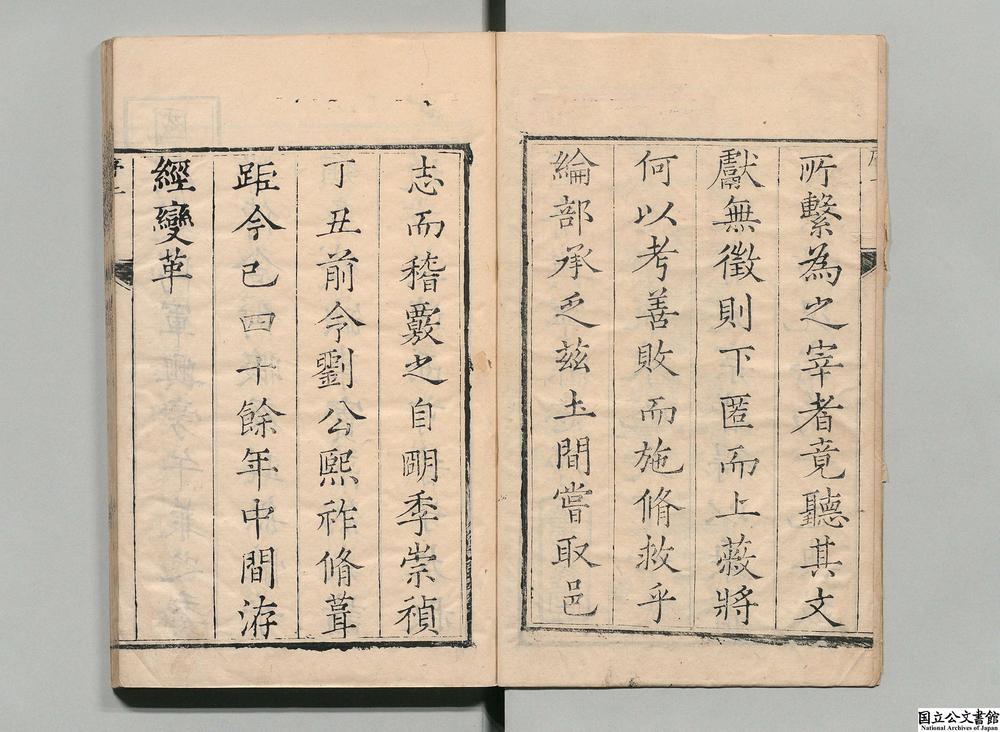 所繫為之宰者竟聽其文
獻無徵則下匿而上蔽將
何以考善敗而施脩救乎
綸部承乏茲土間嘗取邑
志而稽覈之自明季崇禎
丁丑前令劉公熙祚脩葺
距今已四十餘年中間洊
經變革
国立公文書館
National Archives of Japan